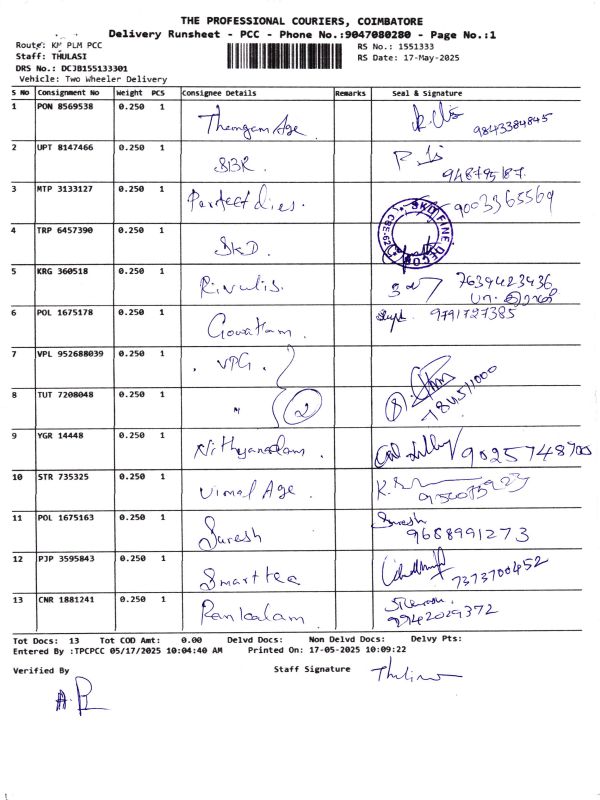 THE PROFESSIONAL COURIERS, COIMBATORE
Delivery Runsheet - PCC - Phone No.:9047080280 - Page No.:1
Route: KM PLM PCC
RS No.: 1551333
Staff: THULASI
RS Date: 17-May-2025
DRS No.: DCJB155133301
Vehicle: Two Wheeler Delivery
S No Consignment No Weight PCS Consignee Details Remarks Seal & Signature
1 PON 8569538 0.250 1 Thangam Age 9843384845
2 UPT 8147466 0.250 1 SBR.
3 MTP 3133127 0.250 1 Perfect dies. 9003365569
4 TRP 6457390 0.250 1 SKD. SKD FINE DECOR
5 KRG 360518 0.250 1 Rivulis. 7639423436
6 POL 1675178 0.250 1 Gowtham. 9791727385
7 VPL 952688039 0.250 1 . VPG.
8 TUT 7208048 0.250 1 " 2
9 YGR 14448 0.250 1 9025748700
10 STR 735325 0.250 1 Vimal Age.
11 POL 1675163 0.250 1 Suresh Suresh
9688991273
12 PJP 3595843 0.250 1 Smart tec 7373700452
13 CNR 1881241 0.250 1 9942029372
Tot Docs: 13 Tot COD Amt: 0.00 Delvd Docs: Non Delvd Docs: Delvy Pts:
Entered By :TPCPCC 05/17/2025 10:04:40 AM Printed On: 17-05-2025 10:09:22
Verified By Staff Signature